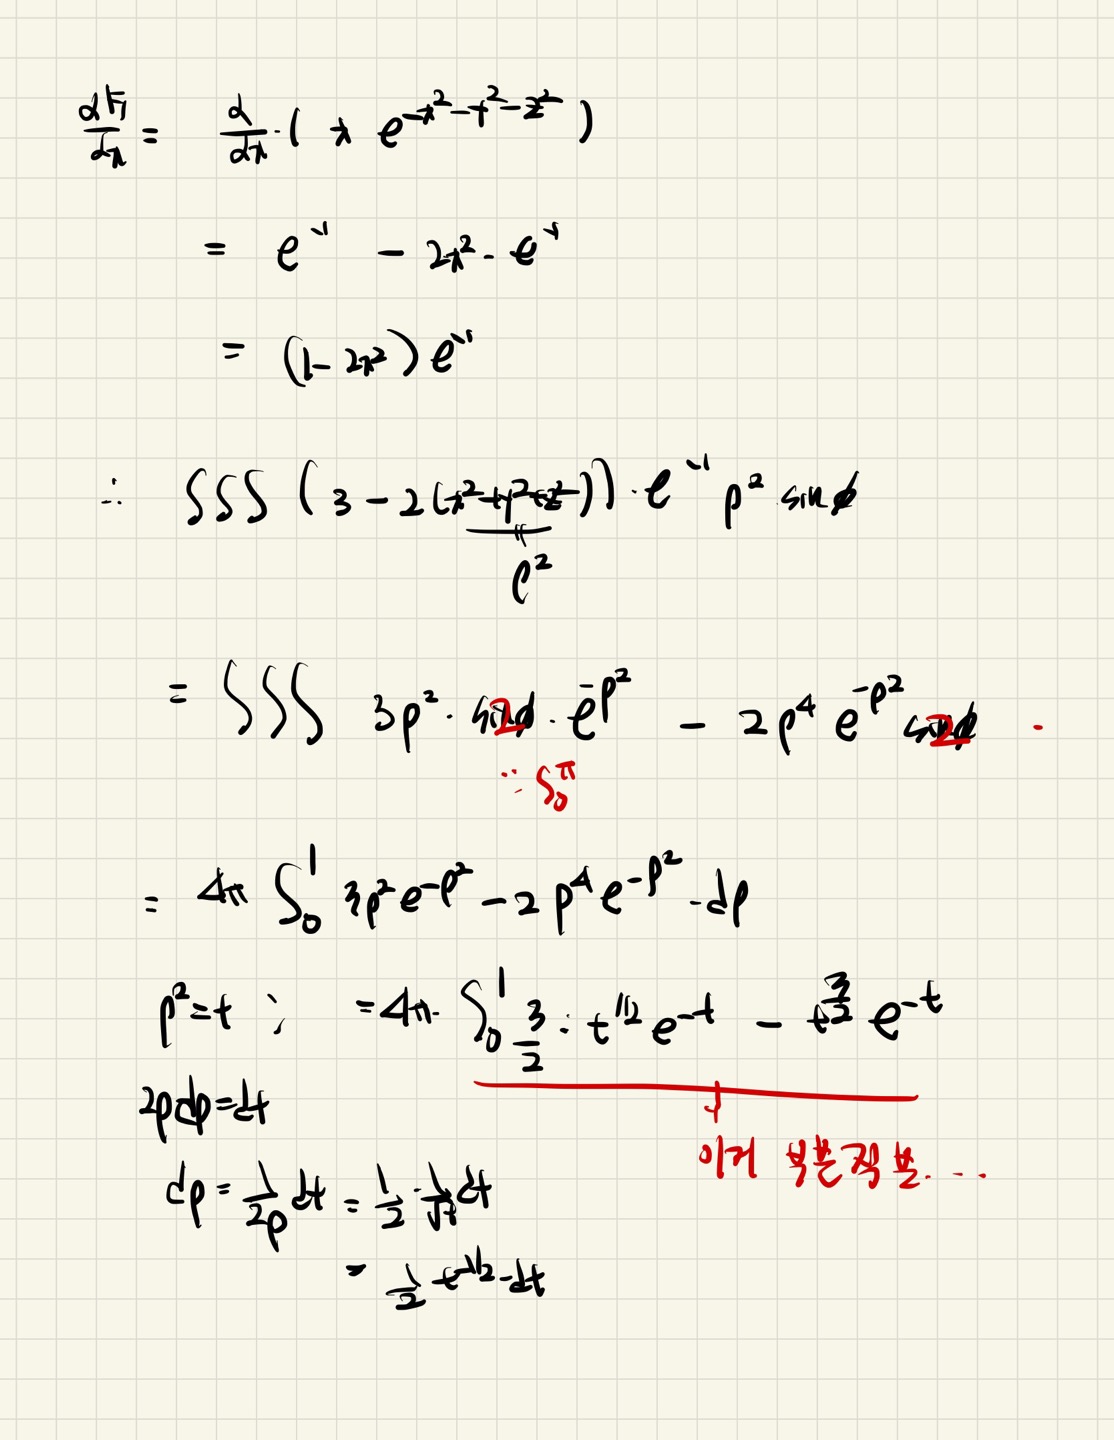 dF₁/dx = d/dx · ( x e^{-x²-y²-z²} )
= e^{〃} - 2x² · e^{〃}
= (1 - 2x²) e^{〃}
∴ ∫∫∫ (3 - 2(x²+y²+z²)) · e^{〃} ρ² sinφ
ρ²
= ∫∫∫ 3ρ² · sinφ 2 · e^{-ρ²} - 2ρ⁴ e^{-ρ²} sinφ 2 ·
∵ ∫₀^π
= 4π ∫₀¹ 3ρ² e^{-ρ²} - 2ρ⁴ e^{-ρ²} · dρ
ρ² = t ; = 4π · ∫₀¹ 3/2 · t^{1/2} e^{-t} - t^{3/2} e^{-t}
2ρdρ = dt
이거 부분적분...
dρ = 1/2ρ dt = 1/2 · 1/√t dt
= 1/2 t^{-1/2} · dt